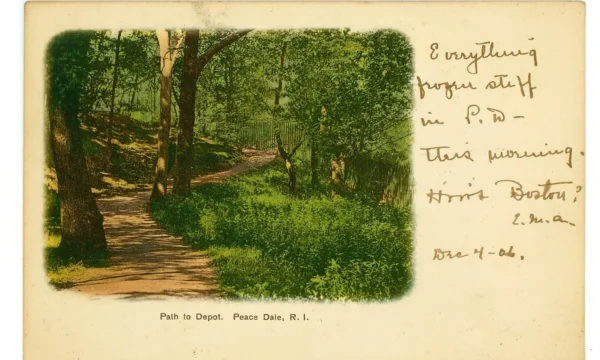 Everything
frozen stiff
in P.D-
this morning.
How's Boston?
E.M.A.
Dec 4-06.
Path to Depot. Peace Dale, R. I.